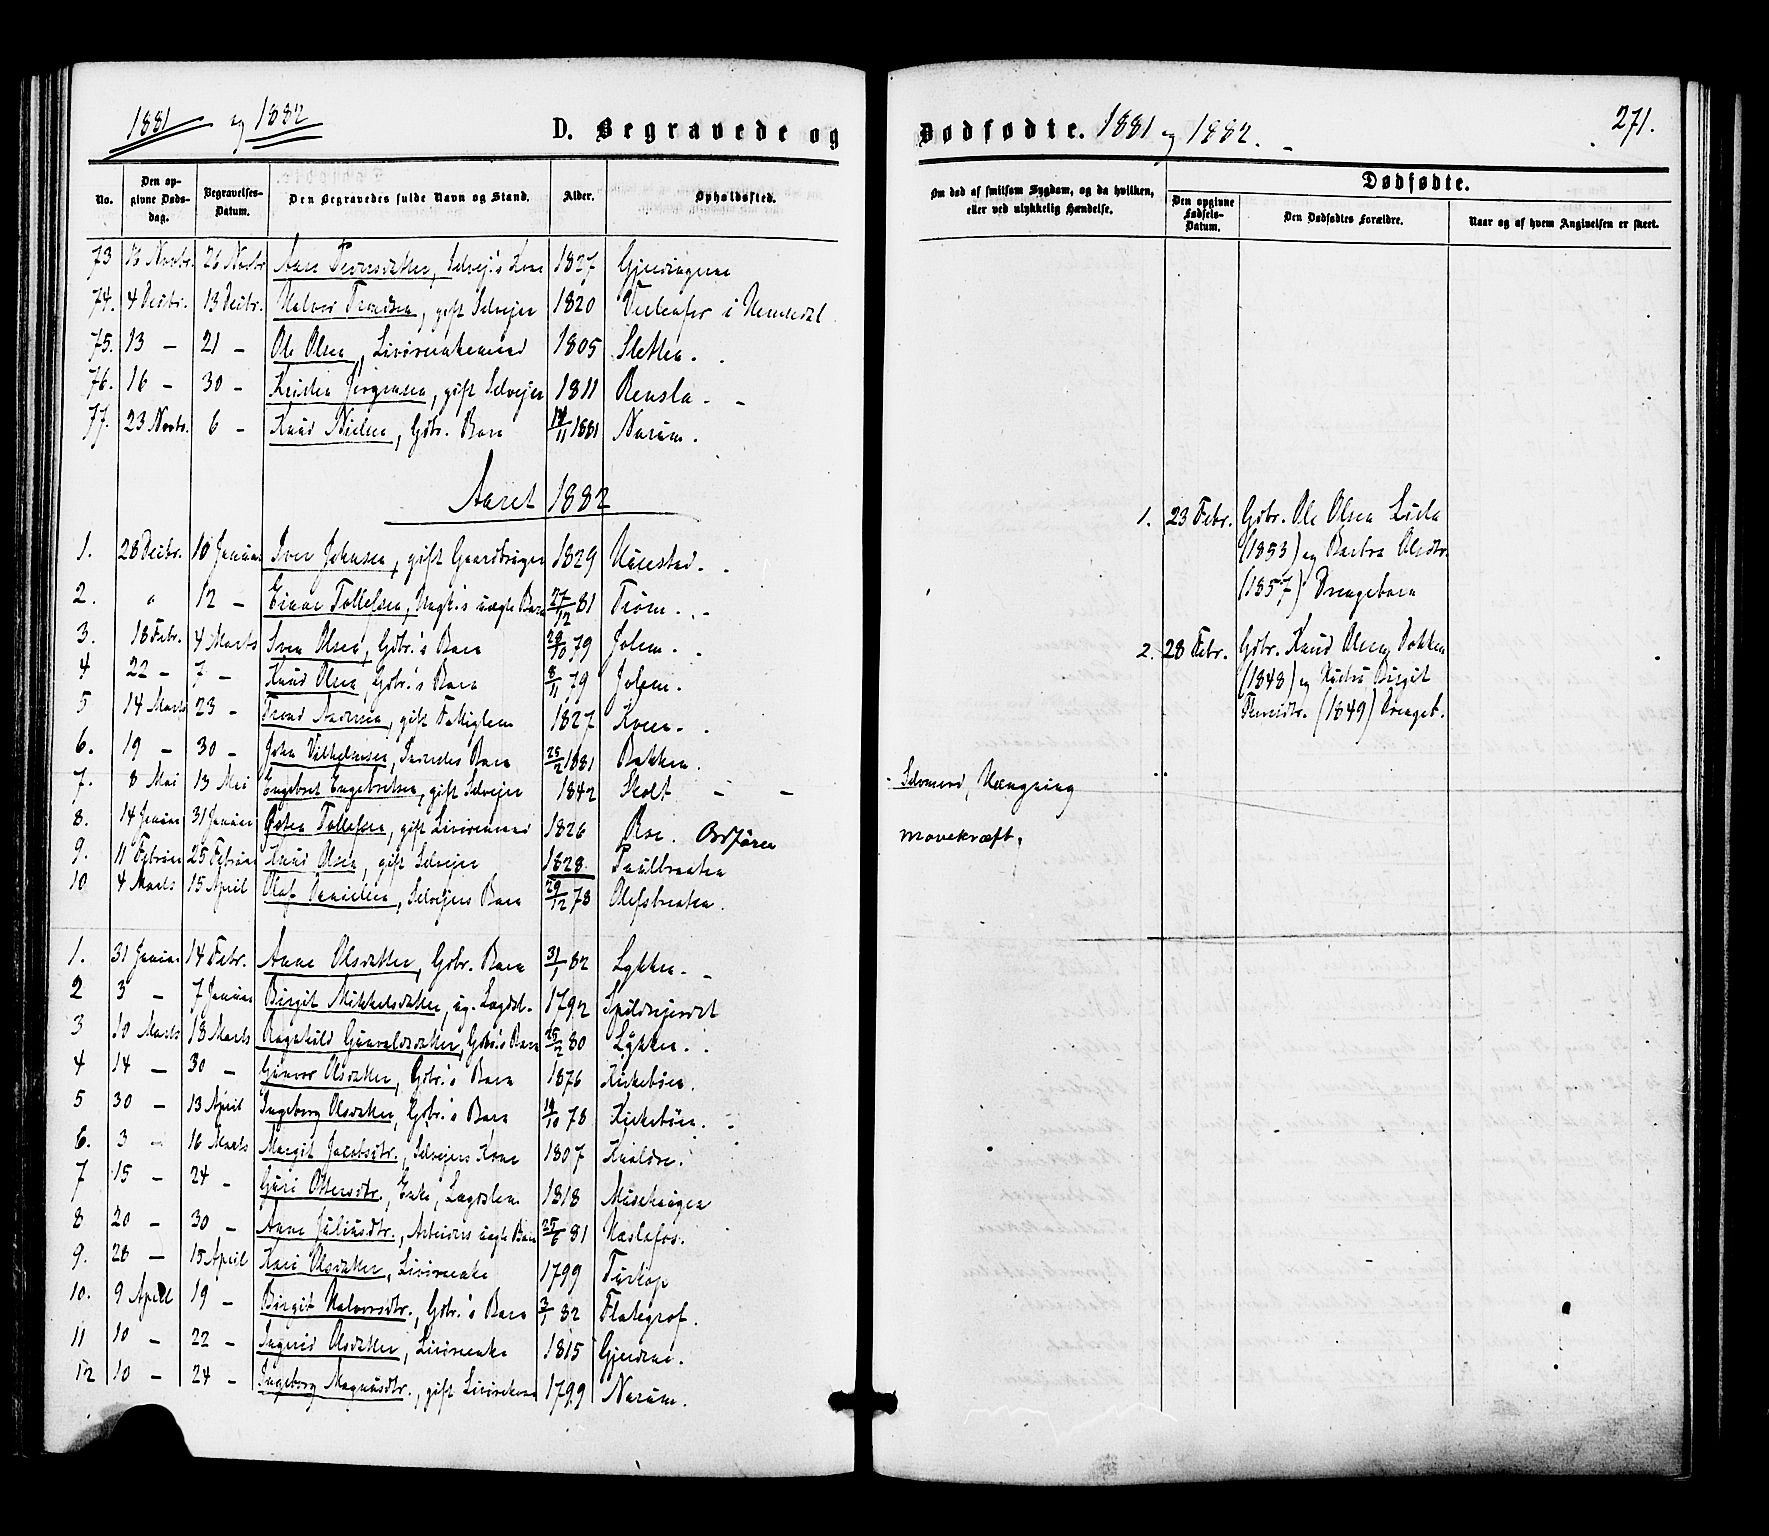 1881 og 1882
D. Begravede og
No. Den opgivne Dødsdag. Begravelses-Datum. Den Begravedes fulde Navn og Stand. Alder. Opholdssted.
73 16 Novbr. 26 Novbr Selvej.'s Kone 1827
74. 4 Decbr. 13 Decbr. Halvor gift Selvejer 1820 i Hemsedal
75. 13 – 21 – Ole Olsen, 1805 Sletten.
76. 16 – 30 – Kristen Jørgensen, gift Selvejer 1811 Rensla.
77. 23 Novb. 6 – Knud Nielsen, Gdbr. Barn 14/11 1881 Narum.
Aaret 1882
1. 28 Decbr. 10 Januar Iver Johnsen, gift Gaardbruger 1829
2. " 12 – Tollefsen, Ungk.'s uægte Barn 27/12 81 Trøm.
3. 18 Febr. 4 Marts Sven Olsen, Gdbr.'s Barn 28/10 79 Jolem.
4 22 – 7 – Knud Olsen, Gdbr.'s Barn 8/11 79 Jolem.
5 14 Marts 23 – Trond gift Fattiglem 1827
6. 19 – 30 – John Vilhelmsen, Barn 25/2 1881 Bakken.
7. 8 Mai 13 Mai Engebret Engebretsen, gift Selvejer 1842 Skolt – –
8. 14 Januar 31 Januar Østen Tollefsen, gift 1826 Roe.
9. 11 Februar 25 Februar Knud Olsen, gift Selvejer 1828. Paulbraaten
10 4 Marts 15 April Olaf Danielsen, Selvejers Barn 29/12 78 Olefsbraaten.
1. 31 Januar 14 Febr. Anne Olsdatter, Gdbr. Barn 31/1 82 Lykken.
2 3 – 7 Januar Birgit Mikkelsdatter, ug. Lægdsl. 1792
3 10 Marts 18 Marts Ragnhild Gunvaldsdatter, Gdbr.'s Barn 25/2 80 Lykken.
4 14 – 30 – Gunvor Olsdatter, Gdbr.'s Barn 1876 Kirkebøen.
5 30 – 13 April Ingeborg Olsdatter, Gdbr.'s Barn 19/10 78 Kirkebøen.
6. 3 – 16 Marts Margit Jacobsdtr., Selvejers Kone 1807
7 15 – 24 – Guri Ottersdtr., Enke, Lægdslem 1818
8 20 – 30 – Anne Juliusdtr., Arbeiders uægte Barn 25/6 81 Næslafos.
9. 28 – 15 April Kari Olsdatter, 1799
10. 9 April 19 – Birgit Halvorsdtr., Gdbr.'s Barn 3/1 82
11 10 – 22 – Ingrid Olsdatter, 1815
12 10 – 24 – Ingeborg Magnusdtr., gift 1799 Narum.
Dødfødte. 1881 og 1882. –
271.
Om død af smitsom Sygdom, og da hvilken, eller ved ulykkelig Hændelse.
Dødfødte.
Den opgivne Fødsels-Datum. Den Dødfødtes Forældre. Naar og af hvem Angivelsen er skeet.
1. 23 Febr. Gdbr. Ole Olsen
(1853) og Barbra Olsdtr.
(1857) Drengebarn
2. 28 Febr. Gdbr. Knud Olsen Bakken
(1848) og Hustru Birgit
(1849) Drengeb.
Selvmord, Hængning
mavekræft.